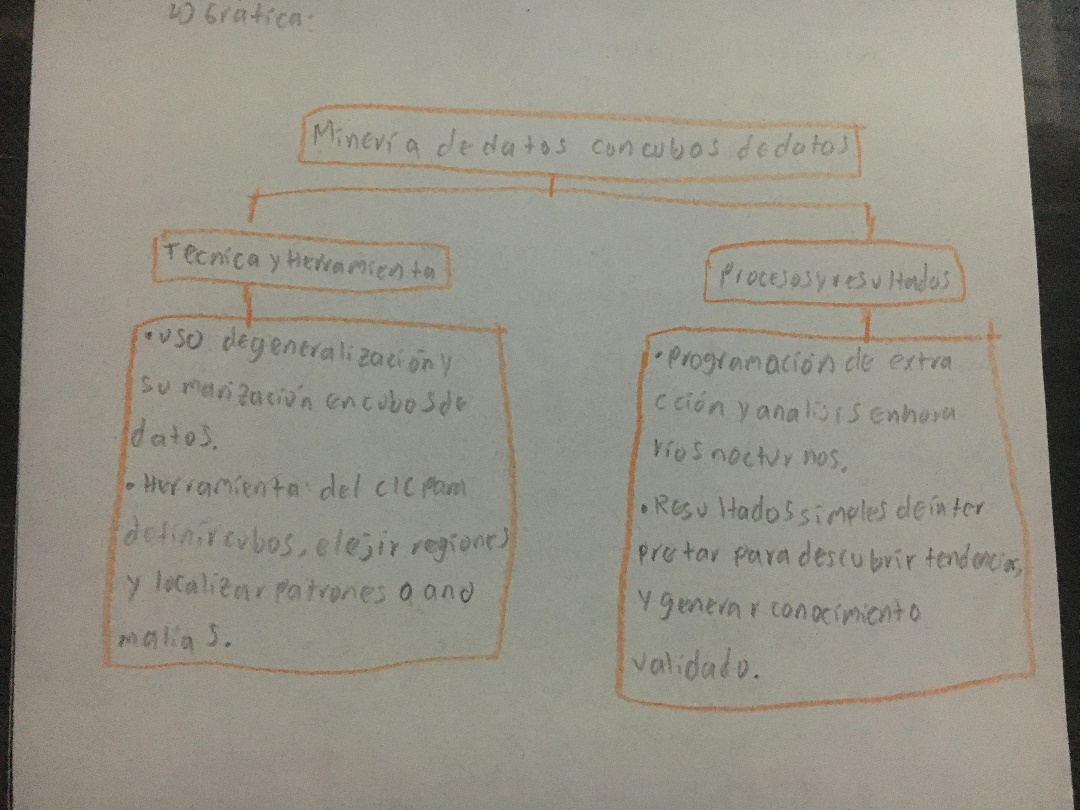 Gráfica:
Minería de datos con cubos de datos
Técnica y Herramienta
Procesos y resultados
• uso de generalización y
sumarización en cubos de
datos.
• Herramienta del CIC para
definir cubos, elejir regiones
y localizar patrones o ano
malías.
• Programación de extra
cción y analisis en hora
rios nocturnos.
• Resultados simples de inter
pretar para descubrir tendencias,
y generar conocimiento
validado.